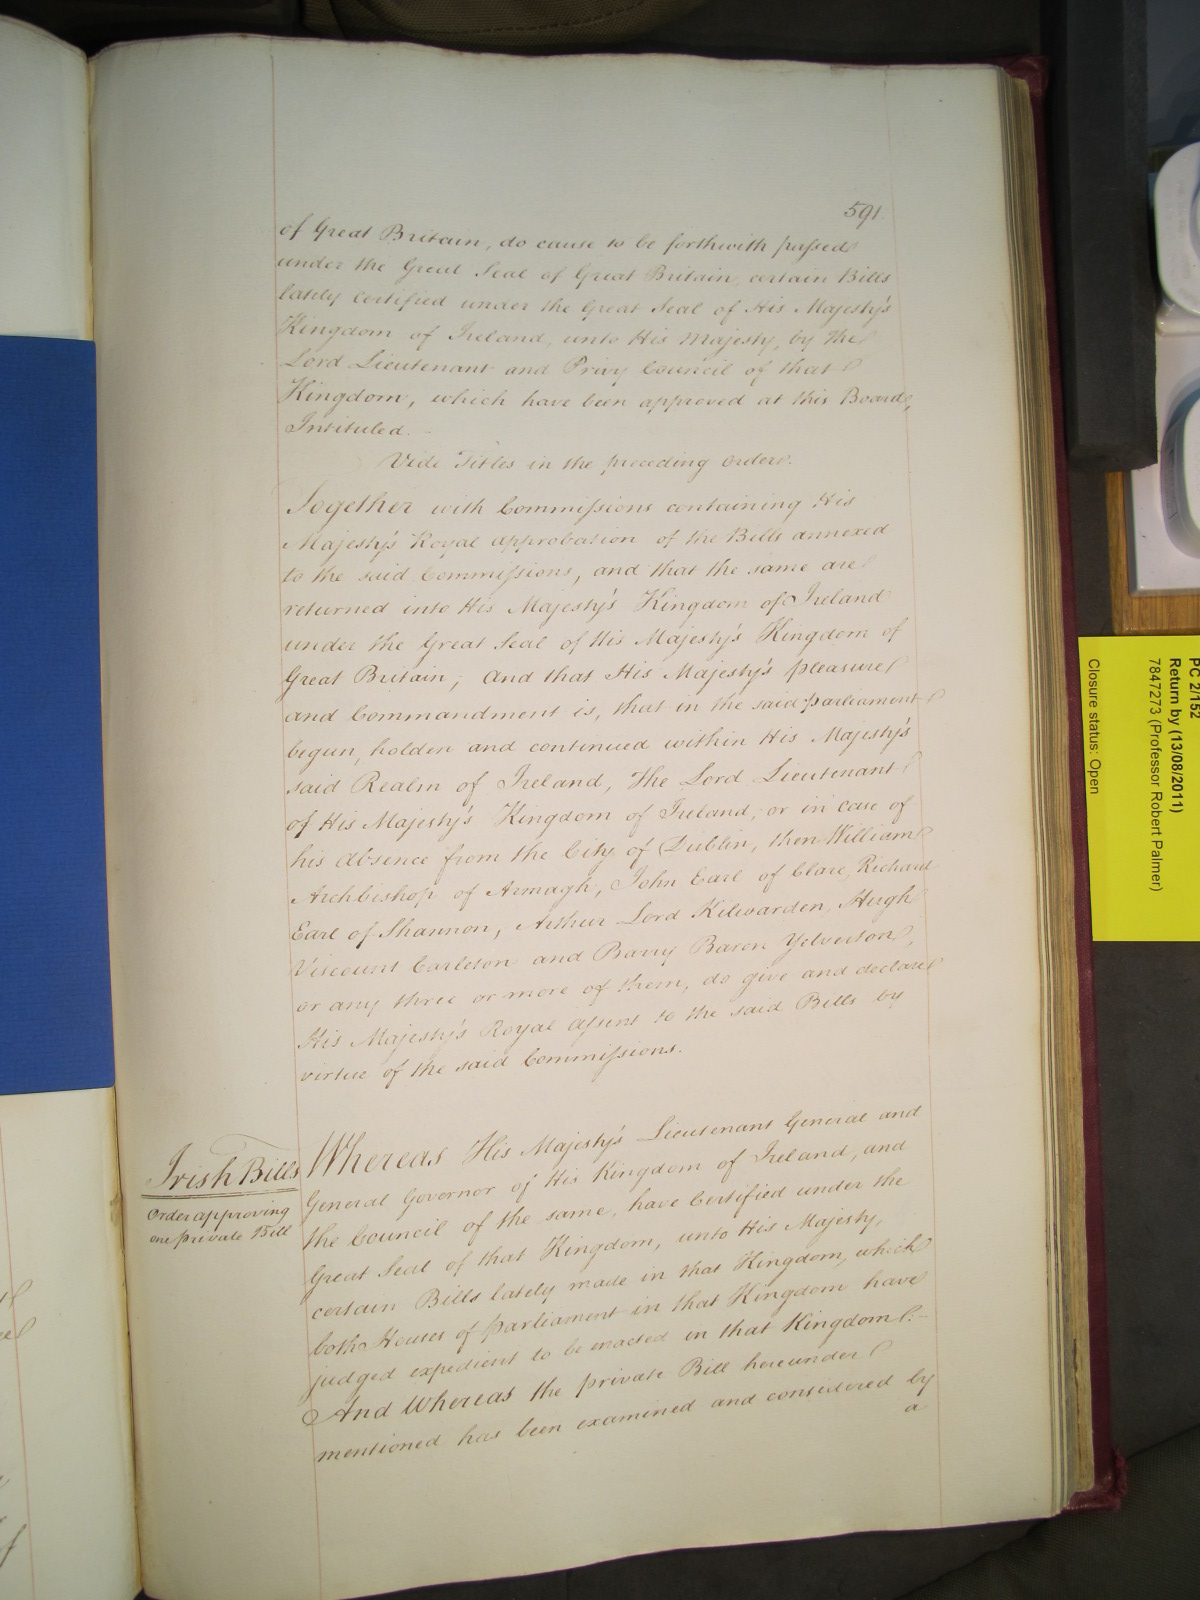 591.
of Great Britain, do cause to be forthwith passed
under the Great Seal of Great Britain, certain Bills
lately certified under the Great Seal of His Majesty's
Kingdom of Ireland, unto His Majesty, by the
Lord Lieutenant and Privy Council of that
Kingdom, which have been approved at this Board,
Intituled.
Vide Titles in the preceding Order.
Together with Commissions containing His
Majesty's Royal approbation of the Bills annexed
to the said Commissions, and that the same are
returned into His Majesty's Kingdom of Ireland
under the Great Seal of His Majesty's Kingdom of
Great Britain; And that His Majesty's pleasure
and Commandment is, that in the said parliament
begun, holden and continued within His Majesty's
said Realm of Ireland, The Lord Lieutenant
of His Majesty's Kingdom of Ireland, or in case of
his absence from the City of Dublin, then William
Archbishop of Armagh, John Earl of Clare, Richard
Earl of Shannon, Arthur Lord Kilwarden, Hugh
Viscount Carleton and Barry Baron Yelverton,
or any three or more of them, do give and declare
His Majesty's Royal assent to the said Bills by
virtue of the said Commissions.
Irish Bills
Order approving
one private Bill
Whereas His Majesty's Lieutenant General and
General Governor of His Kingdom of Ireland, and
the Council of the same, have Certified under the
Great Seal of that Kingdom, unto His Majesty,
certain Bills lately made in that Kingdom, which
both Houses of parliament in that Kingdom have
judged expedient to be enacted in that Kingdom:-
And Whereas the private Bill hereunder
mentioned has been examined and considered by
a
PC 2/152
Return by (13/08/2011)
7847273 (Professor Robert Palmer)
Closure status: Open